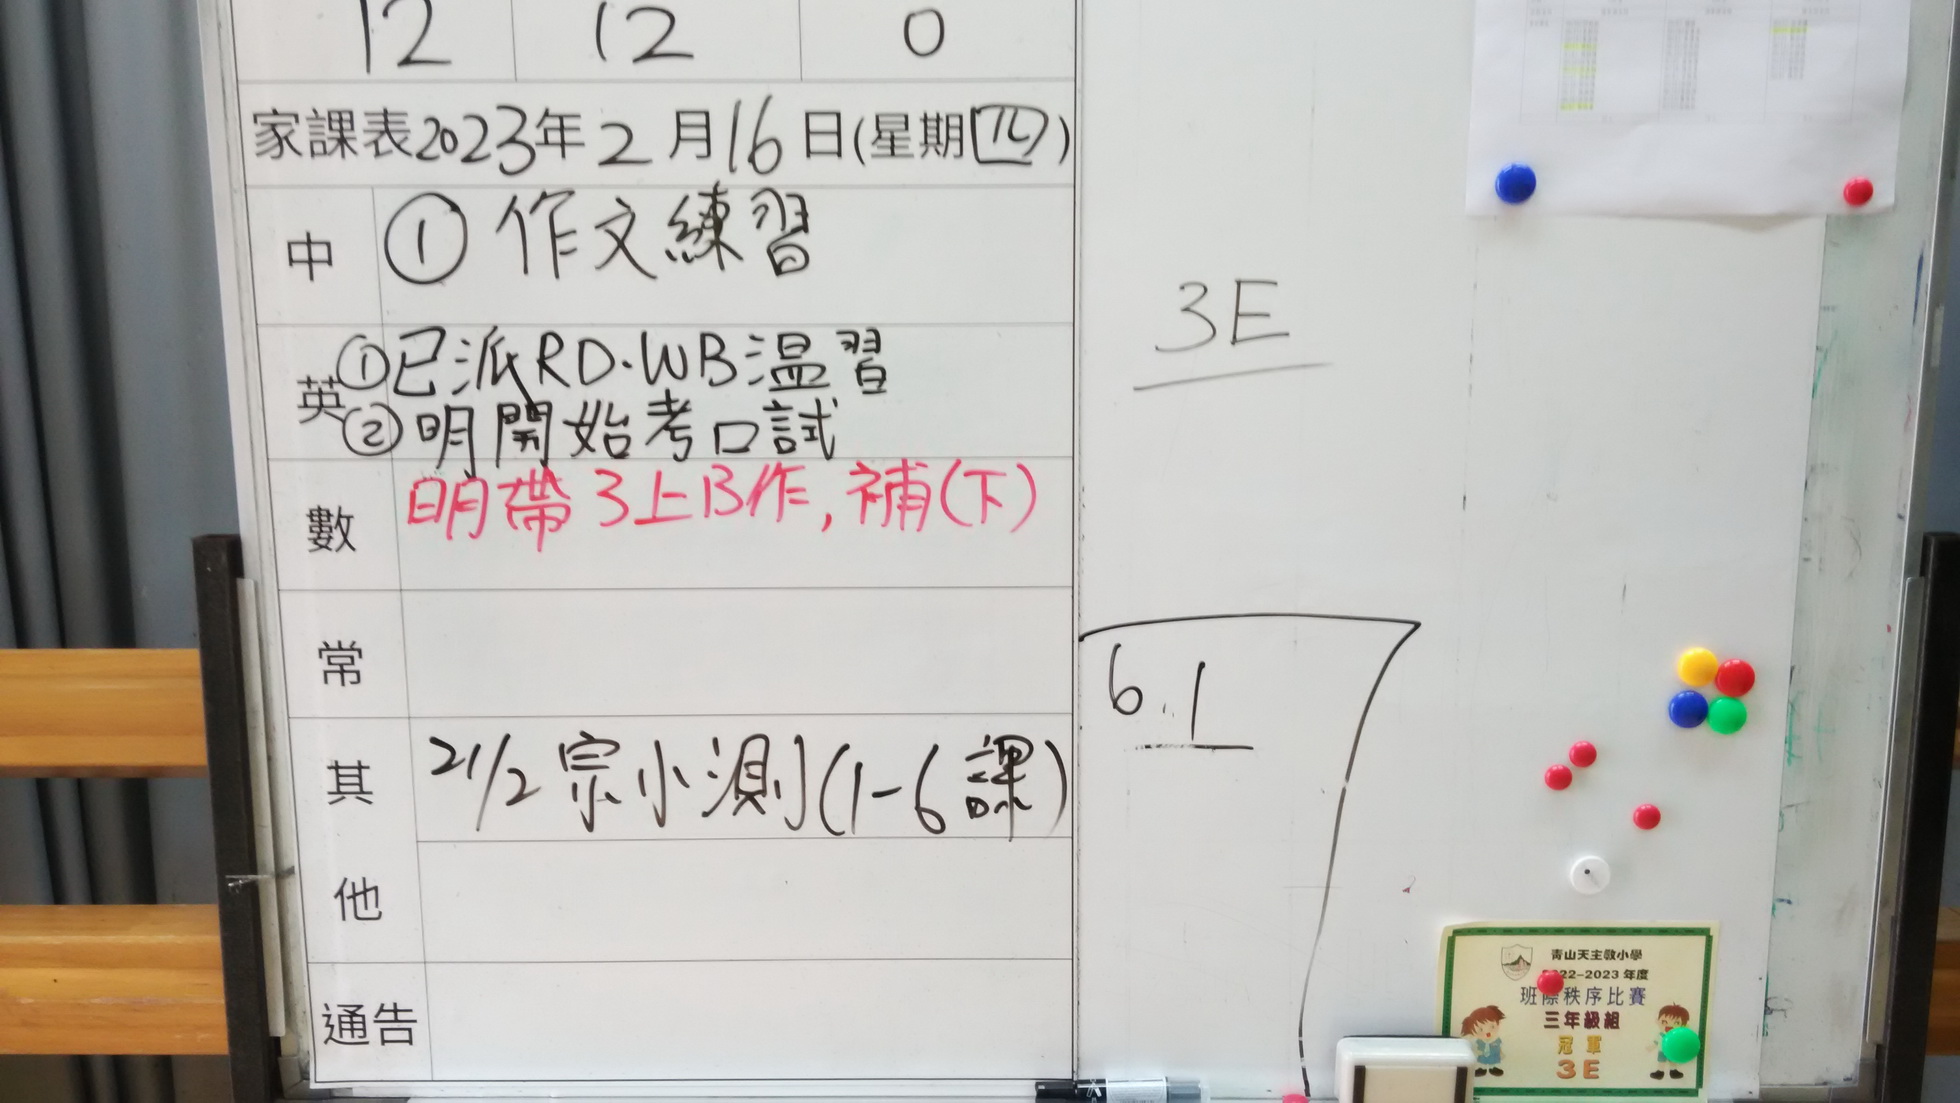 12 12 0
家課表2023年2月16日(星期四)
中 ① 作文練習
英 ①已派RD.WB温習
②明開始考口試
數 明帶3上B作,補(下)
常
其他 21/2 宗小測(1-6課)
通告
3E
6.1
青山天主教小學
2022-2023年度
班際秩序比賽
三年級組
冠軍
3E